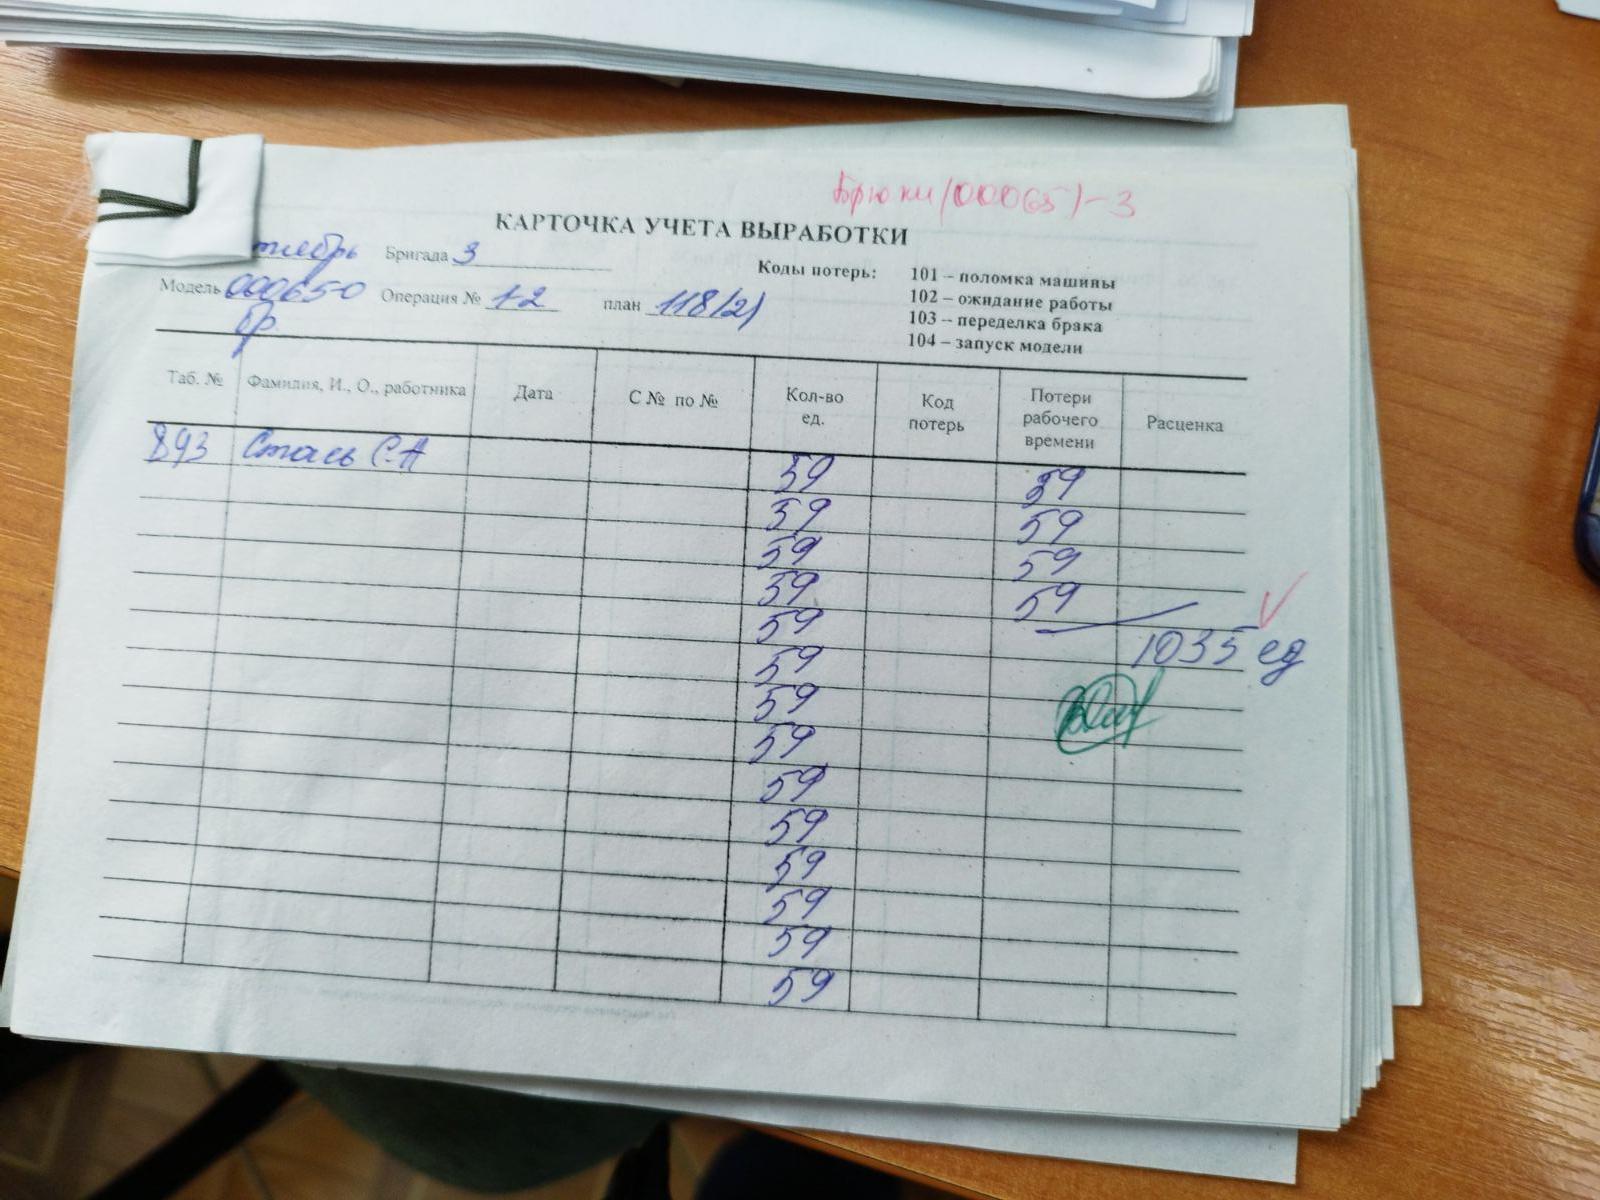 Брюки (00065)-3
КАРТОЧКА УЧЕТА ВЫРАБОТКИ
тябрь Бригада 3
Коды потерь: 101 – поломка машины
Модель 000650 Операция № 1-2 план 118/2)
бр
102 – ожидание работы
103 – переделка брака
104 – запуск модели
Таб. № Фамилия, И., О., работника Дата С № по № Кол-во ед. Код потерь Потери рабочего времени Расценка
893 Стась С.А 59 59
59 59
59 59
59 59
59
59 1035 ед
59
59
59
59
59
59
59
59